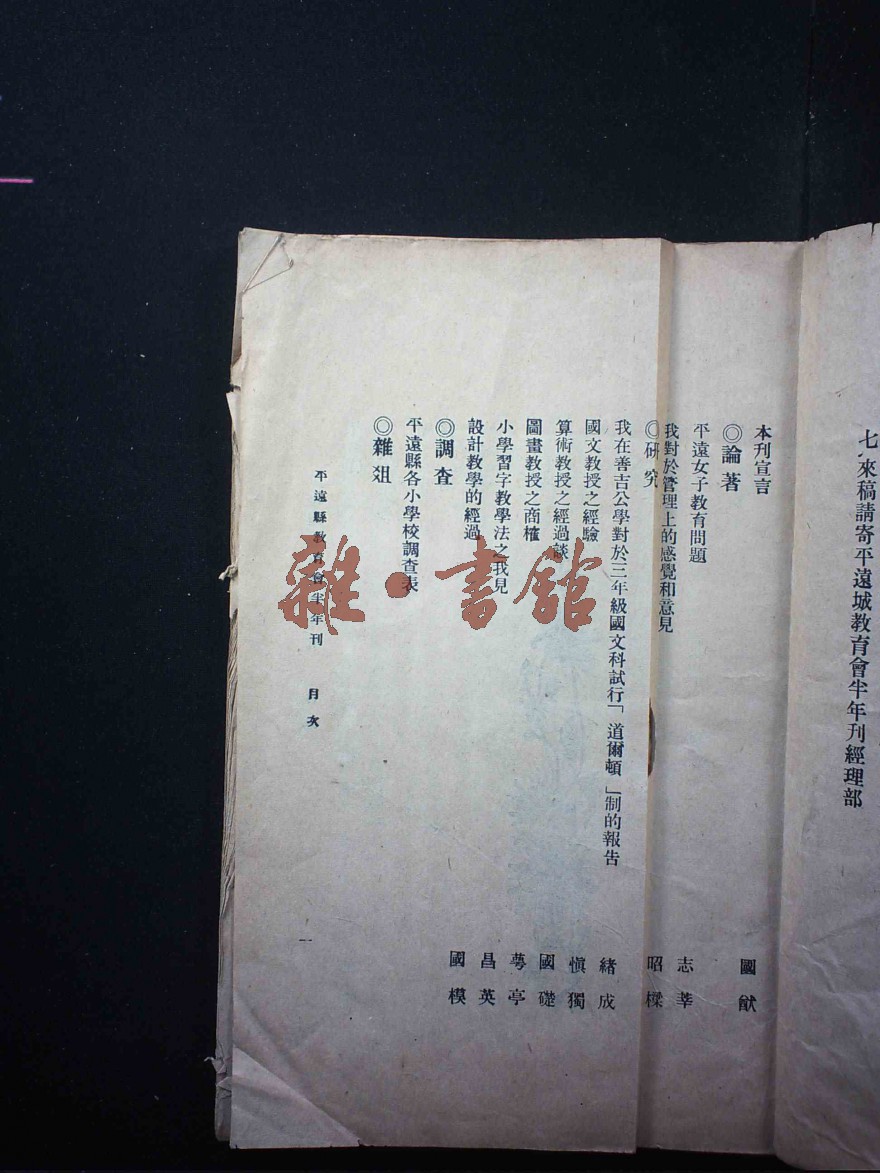 七、來稿請寄平遠城教育會半年刊經理部
本刊宣言 國猷
◎論著
平遠女子教育問題 志莘
我對於管理上的感覺和意見 昭樑
◎研究
我在善吉公學對於三年級國文科試行「道爾頓」制的報告 緒成
國文教授之經驗 愼獨
算術教授之經過談 國礎
圖畫教授之商榷 蕚亭
小學習字教學法之我見 昌英
設計教學的經過 國模
◎調查
平遠縣各小學校調查表
◎雜俎
平遠縣教育會半年刊 目次
一
雜·書館